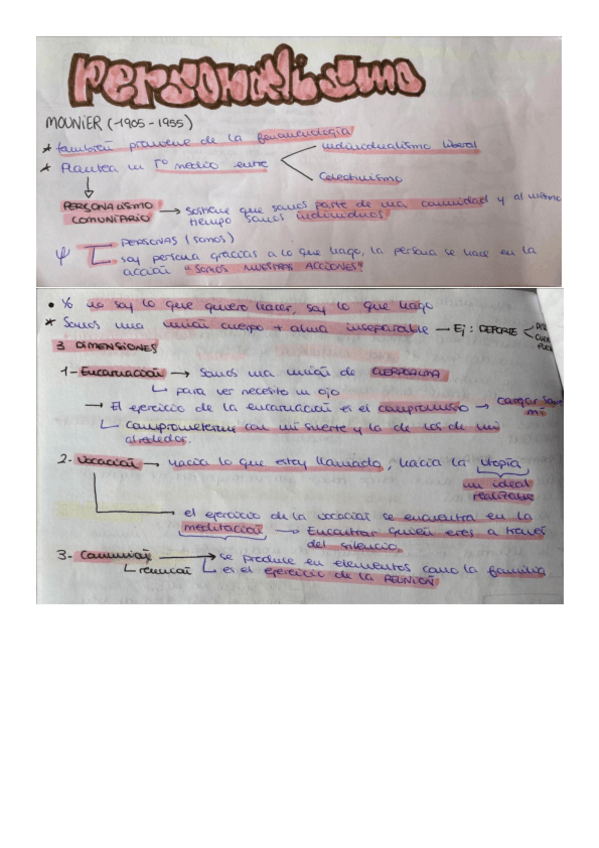 Personalismo
MOUNIER (-1905-1955)
* también proviene de la fenomenología
individualismo liberal
* Plantea un Tº medio entre
Colectivismo
PERSONALISMO
COMUNITARIO → sostiene que somos parte de una comunidad y al mismo
tiempo somos individuos
Ψ PERSONAS (somos)
soy persona gracias a lo que hago, la persona se hace en la
acción "SOMOS NUESTRAS ACCIONES"
• Yo no soy lo que quiero hacer, soy lo que hago
* Somos una unión cuerpo + alma inseparable → Ej: DEPORTE
3 DIMENSIONES
1- Encarnación → Somos una unión de CUERPO/ALMA
para ver necesito un ojo
→ El ejercicio de la encarnación es el compromiso → cargar sobre
mí
comprometerme con mi suerte y la de los de mi
alrededor.
2- Vocación → hacia lo que estoy llamado, hacia la utopía
un ideal
realizable
el ejercicio de la vocación se encuentra en la
meditación → Encontrar quien eres a través
del silencio.
3- Comunión → se produce en elementos como la familia
reunión es el ejercicio de la REUNIÓN